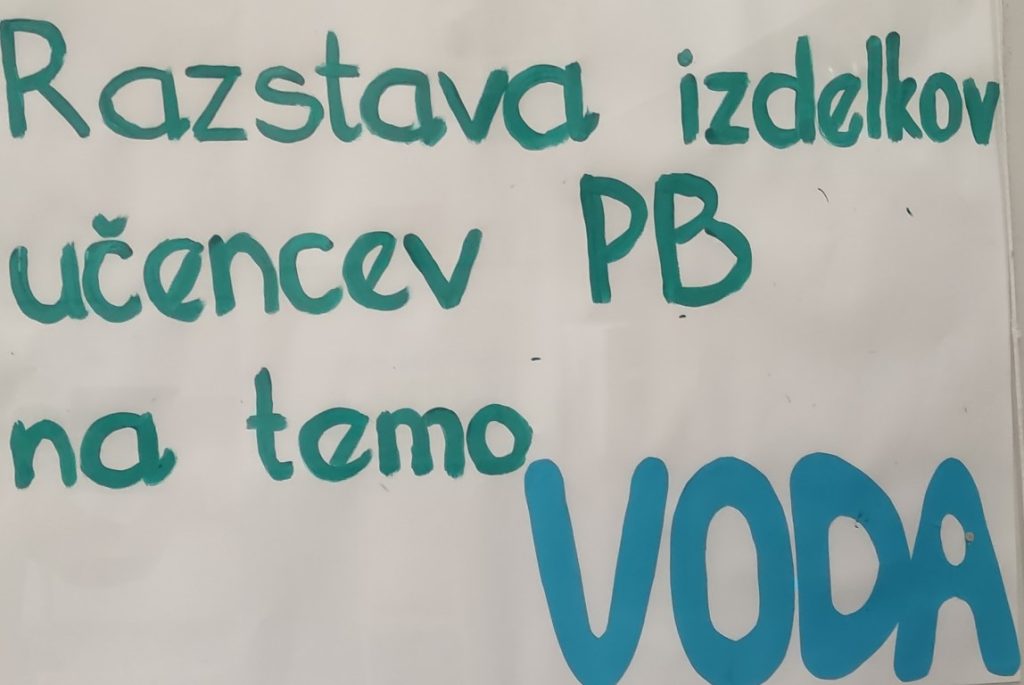 Razstava izdelkov
učencev PB
na temo
VODA